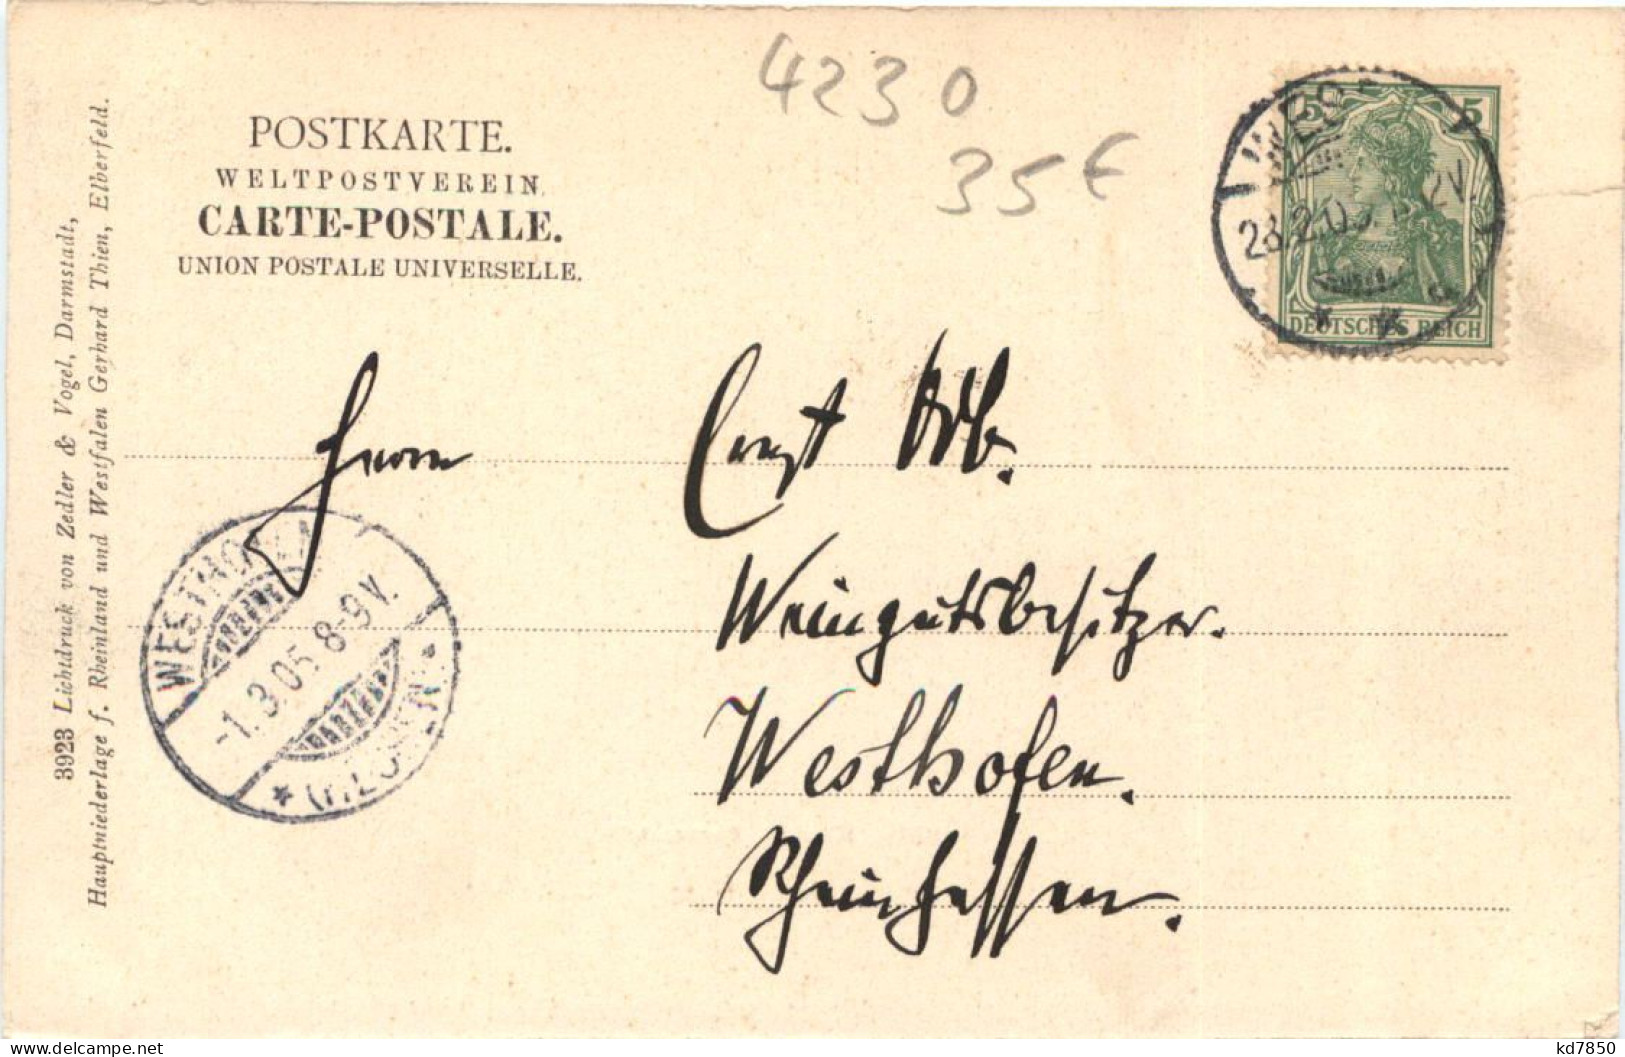 4230
35 €
POSTKARTE.
WELTPOSTVEREIN.
CARTE-POSTALE.
UNION POSTALE UNIVERSELLE.
3923 Lichtdruck von Zedler & Vogel, Darmstadt,
Hauptniederlage f. Rheinland und Westfalen Gerhard Thien, Elberfeld.
5 5
DEUTSCHES REICH
WES
28.2.05
Herrn Ernst
Weingutsbesitzer.
Westhofen.
Rheinhessen.
WESTHOFEN
-1.3.05 8-9V.
delcampe.net
kd7850